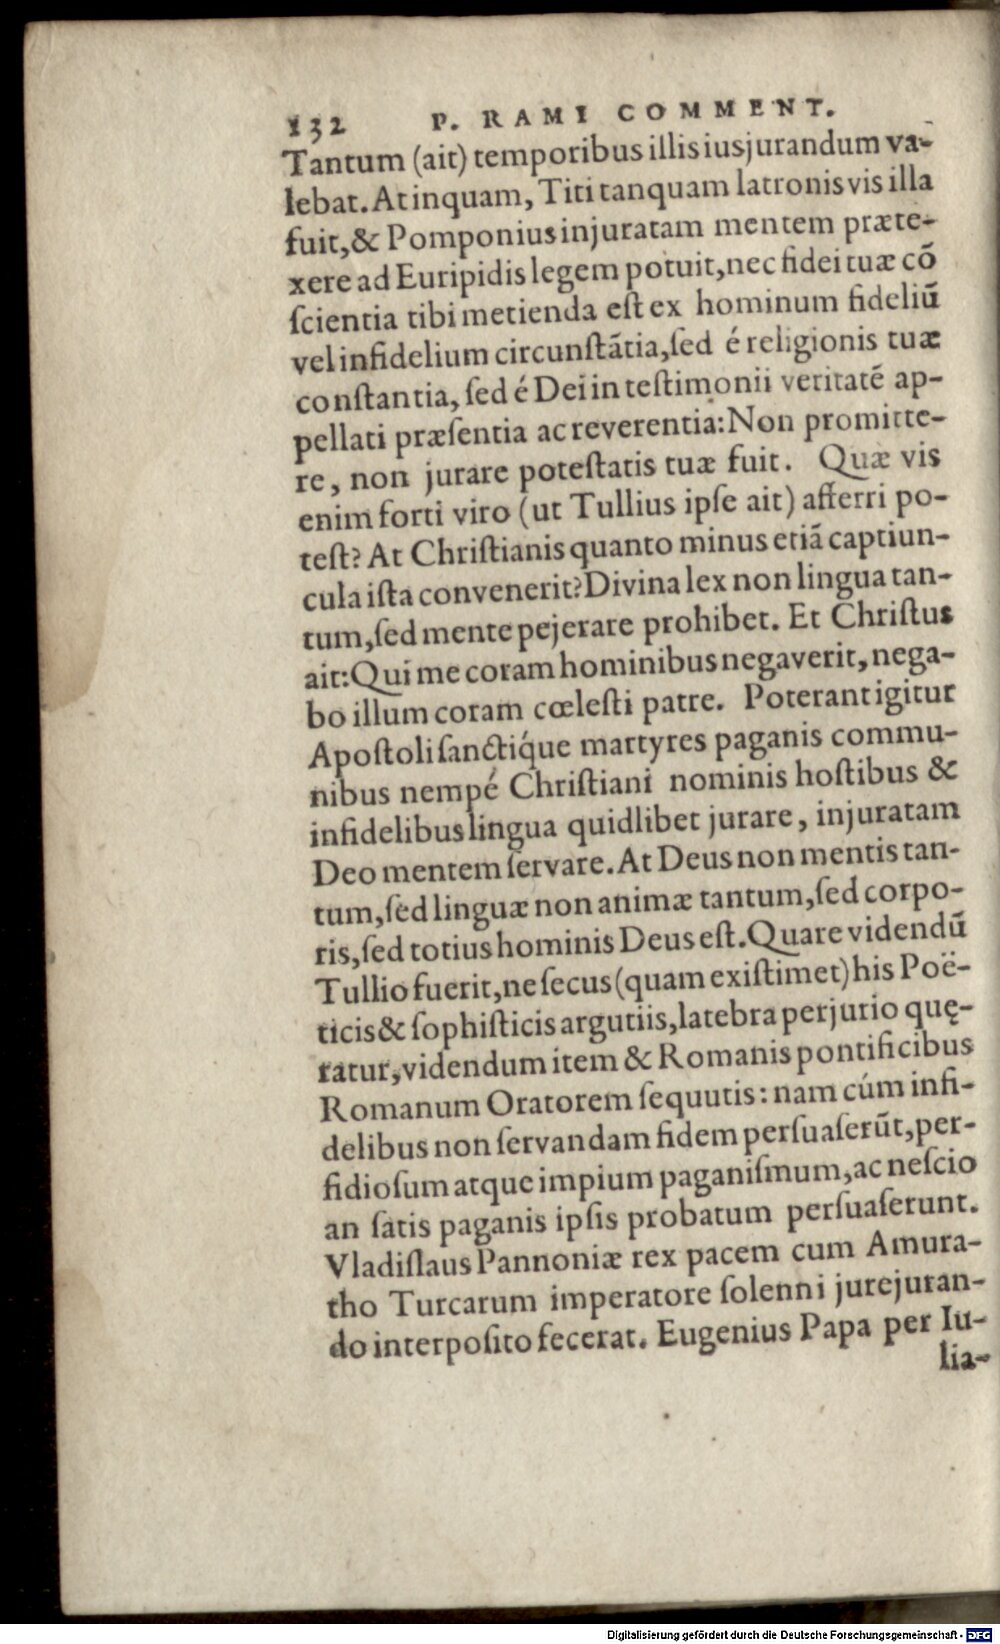 132 P. RAMI COMMENT.
Tantum (ait) temporibus illis iusjurandum va-
lebat. At inquam, Titi tanquam latronis vis illa
fuit, & Pomponius injuratam mentem præte-
xere ad Euripidis legem potuit, nec fidei tuæ cō
ſcientia tibi metienda eſt ex hominum fideliū
vel infidelium circunſtātia, ſed é religionis tuæ
conſtantia, ſed é Dei in teſtimonii veritatē ap-
pellati præſentia ac reverentia: Non promitte-
re, non jurare poteſtatis tuæ fuit. Quæ vis
enim forti viro (ut Tullius ipſe ait) afferri po-
teſt? At Chriſtianis quanto minus etiā captiun-
cula iſta convenerit? Divina lex non lingua tan-
tum, ſed mente pejerare prohibet. Et Chriſtus
ait: Qui me coram hominibus negaverit, nega-
bo illum coram cœleſti patre. Poterant igitur
Apoſtoli ſanctiq́ue martyres paganis commu-
nibus nempé Chriſtiani nominis hoſtibus &
infidelibus lingua quidlibet jurare, injuratam
Deo mentem ſervare. At Deus non mentis tan-
tum, ſed linguæ non animæ tantum, ſed corpo-
ris, ſed totius hominis Deus eſt. Quare videndū
Tullio fuerit, ne ſecus (quam exiſtimet) his Poë-
ticis & ſophiſticis argutiis, latebra perjurio quę-
ratur, videndum item & Romanis pontificibus
Romanum Oratorem ſequutis: nam cúm infi-
delibus non ſervandam fidem perſuaſerūt, per-
fidioſum atque impium paganiſmum, ac neſcio
an ſatis paganis ipſis probatum perſuaſerunt.
Vladiſlaus Pannoniæ rex pacem cum Amura-
tho Turcarum imperatore ſolenni jurejuran-
do interpoſito fecerat. Eugenius Papa per Iu-
lia-
Digitalisierung gefördert durch die Deutsche Forschungsgemeinschaft - DFG